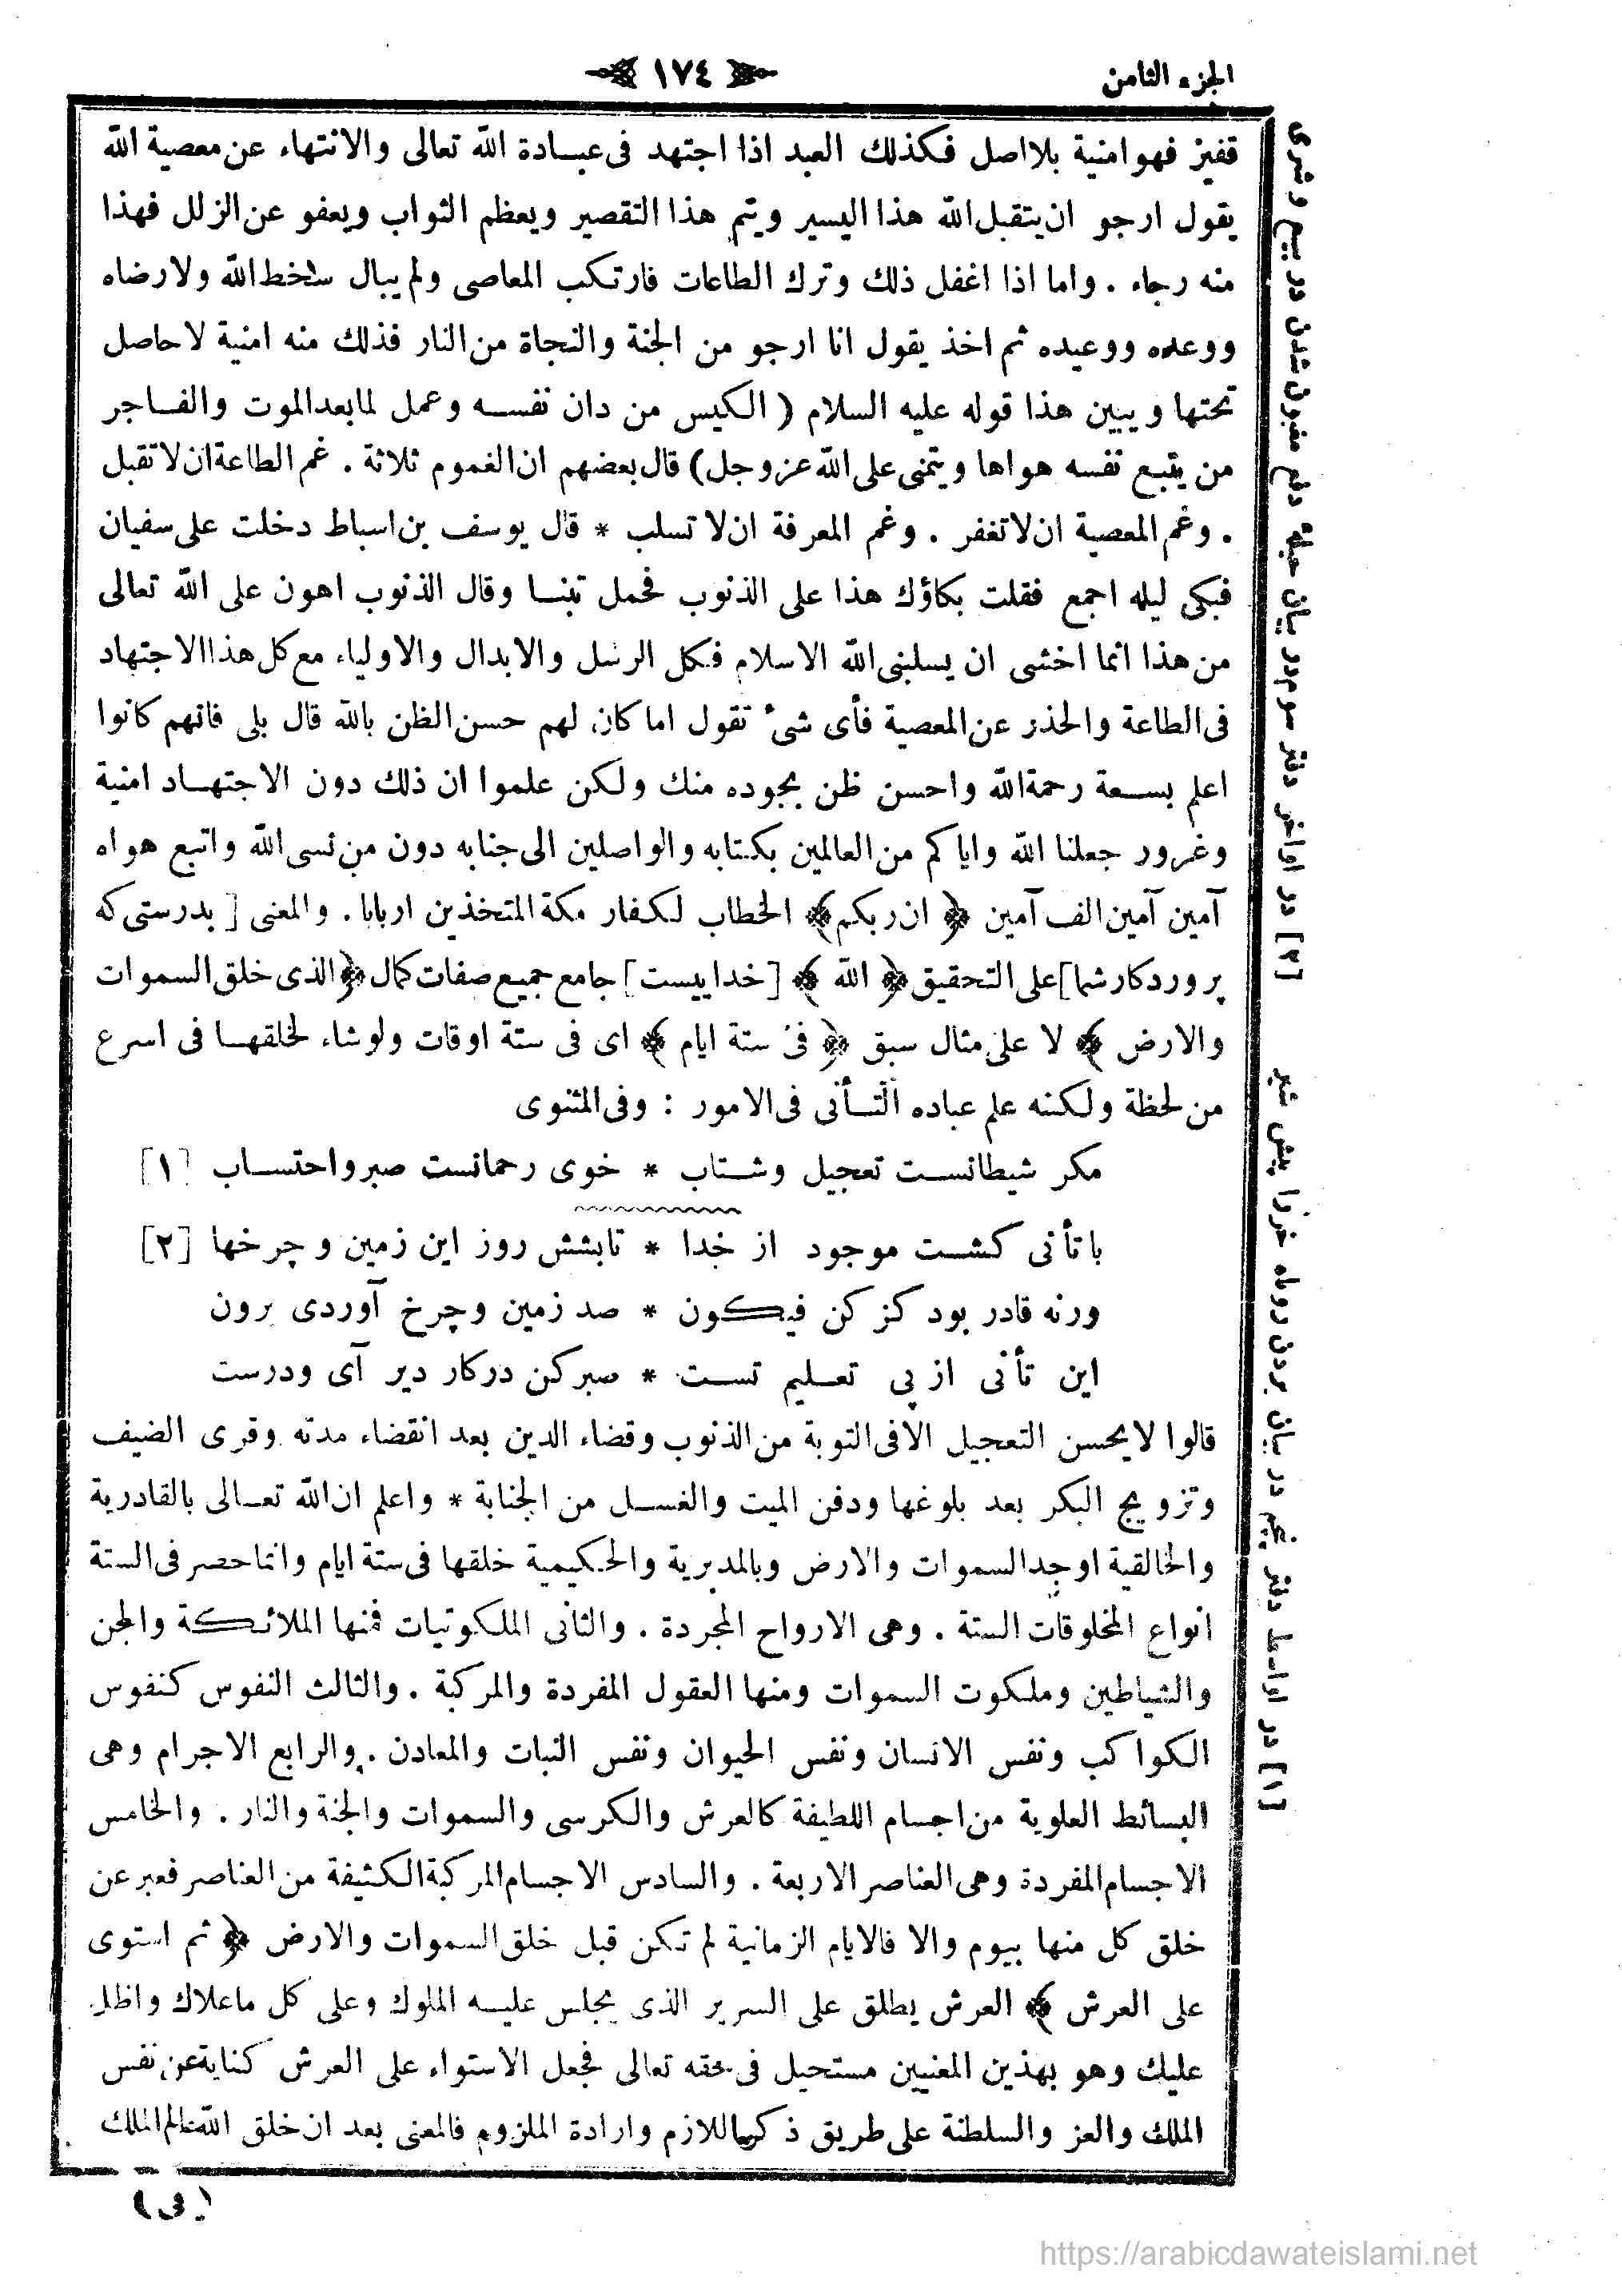 الجزء الثامن
١٧٤
قفيز فهو امنية بلا اصل فكذلك العبد اذا اجتهد فى عبادة الله تعالى والانتهاء عن معصية الله
يقول ارجو ان يتقبل الله هذا اليسير ويتم هذا التقصير ويعظم الثواب ويعفو عن الزلل فهذا
منه رجاء . واما اذا اغفل ذلك وترك الطاعات فارتكب المعاصى ولم يبال سخط الله ولا رضاه
ووعده ووعيده ثم اخذ يقول انا ارجو من الجنة والنجاة من النار فذلك منه امنية لا حاصل
تحتها ويبين هذا قوله عليه السلام ( الكيس من دان نفسه وعمل لما بعد الموت والفاجر
من يتبع نفسه هواها ويتمنى على الله عز وجل ) قال بعضهم ان الغموم ثلاثة . غم الطاعة ان لا تقبل
. وغم المعصية ان لا تغفر . وغم المعرفة ان لا تسلب * قال يوسف بن اسباط دخلت على سفيان
فبكى ليله اجمع فقلت بكاؤك هذا على الذنوب فحمل تبنا وقال الذنوب اهون على الله تعالى
من هذا انما اخشى ان يسلبنى الله الاسلام فكل الرسل والابدال والاولياء مع كل هذا الاجتهاد
فى الطاعة والحذر عن المعصية فأى شىء تقول اما كان لهم حسن الظن بالله قال بلى فانهم كانوا
اعلم بسعة رحمة الله واحسن ظن بجوده منك ولكن علموا ان ذلك دون الاجتهاد امنية
وغرور جعلنا الله واياكم من العالمين بكتابه والواصلين الى جنابه دون من نسى الله واتبع هواه
آمين آمين الف آمين ﴿ ان ربكم ﴾ الخطاب لكفار مكة المتخذين اربابا . والمعنى [ بدرستى كه
پروردكار شما ] على التحقيق ﴿ الله ﴾ [ خداييست ] جامع جميع صفات كمال ﴿ الذى خلق السموات
والارض ﴾ لا على مثال سبق ﴿ فى ستة ايام ﴾ اى فى ستة اوقات ولو شاء لخلقها فى اسرع
من لحظة ولكنه علم عباده التأنى فى الامور : وفى المثنوى
مكر شيطانست تعجيل وشتاب * خوى رحمانست صبر واحتساب [١]
با تأنى كشت موجود از خدا * تابشش روز اين زمين و چرخها [٢]
ورنه قادر بود كز كن فيكون * صد زمين وچرخ آوردى برون
اين تأنى از پى تعليم تست * صبر كن دركار دير آى ودرست
قالوا لا يحسن التعجيل الا فى التوبة من الذنوب وقضاء الدين بعد انقضاء مدته وقرى الضيف
وتزويج البكر بعد بلوغها ودفن الميت والغسل من الجنابة * واعلم ان الله تعالى بالقادرية
والخالقية اوجد السموات والارض وبالمدبرية والحكيمية خلقها فى ستة ايام وانما حصر فى الستة
انواع المخلوقات الستة . وهى الارواح المجردة . والثانى الملكوتيات فمنها الملائكة والجن
والشياطين وملكوت السموات ومنها العقول المفردة والمركبة . والثالث النفوس كنفوس
الكواكب ونفس الانسان ونفس الحيوان ونفس النبات والمعادن . والرابع الاجرام وهى
البسائط العلوية من اجسام اللطيفة كالعرش والكرسى والسموات والجنة والنار . والخامس
الاجسام المفردة وهى العناصر الاربعة . والسادس الاجسام المركبة الكثيفة من العناصر فعبر عن
خلق كل منها بيوم والا فالايام الزمانية لم تكن قبل خلق السموات والارض ﴿ ثم استوى
على العرش ﴾ العرش يطلق على السرير الذى يجلس عليه الملوك وعلى كل ما علاك واظلك
عليك وهو بهذين المعنيين مستحيل فى حقه تعالى فجعل الاستواء على العرش كناية عن نفس
الملك والعز والسلطنة على طريق ذكر اللازم وارادة الملزوم فالمعنى بعد ان خلق الله عالم الملك
( فى )
[٢] در اواخر دفتر سوم در بيان حيلهٔ دفع مغبون شدن در بيع و شرى
[١] در اواسط دفتر پنجم در بيان بردن روباه خر را پيش شير
https://arabicdawateislami.net